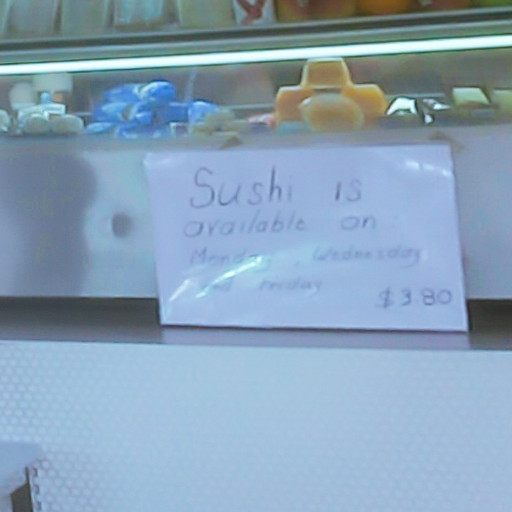 Sushi is
available on:
Monday, Wednesday
and Friday
$3.80